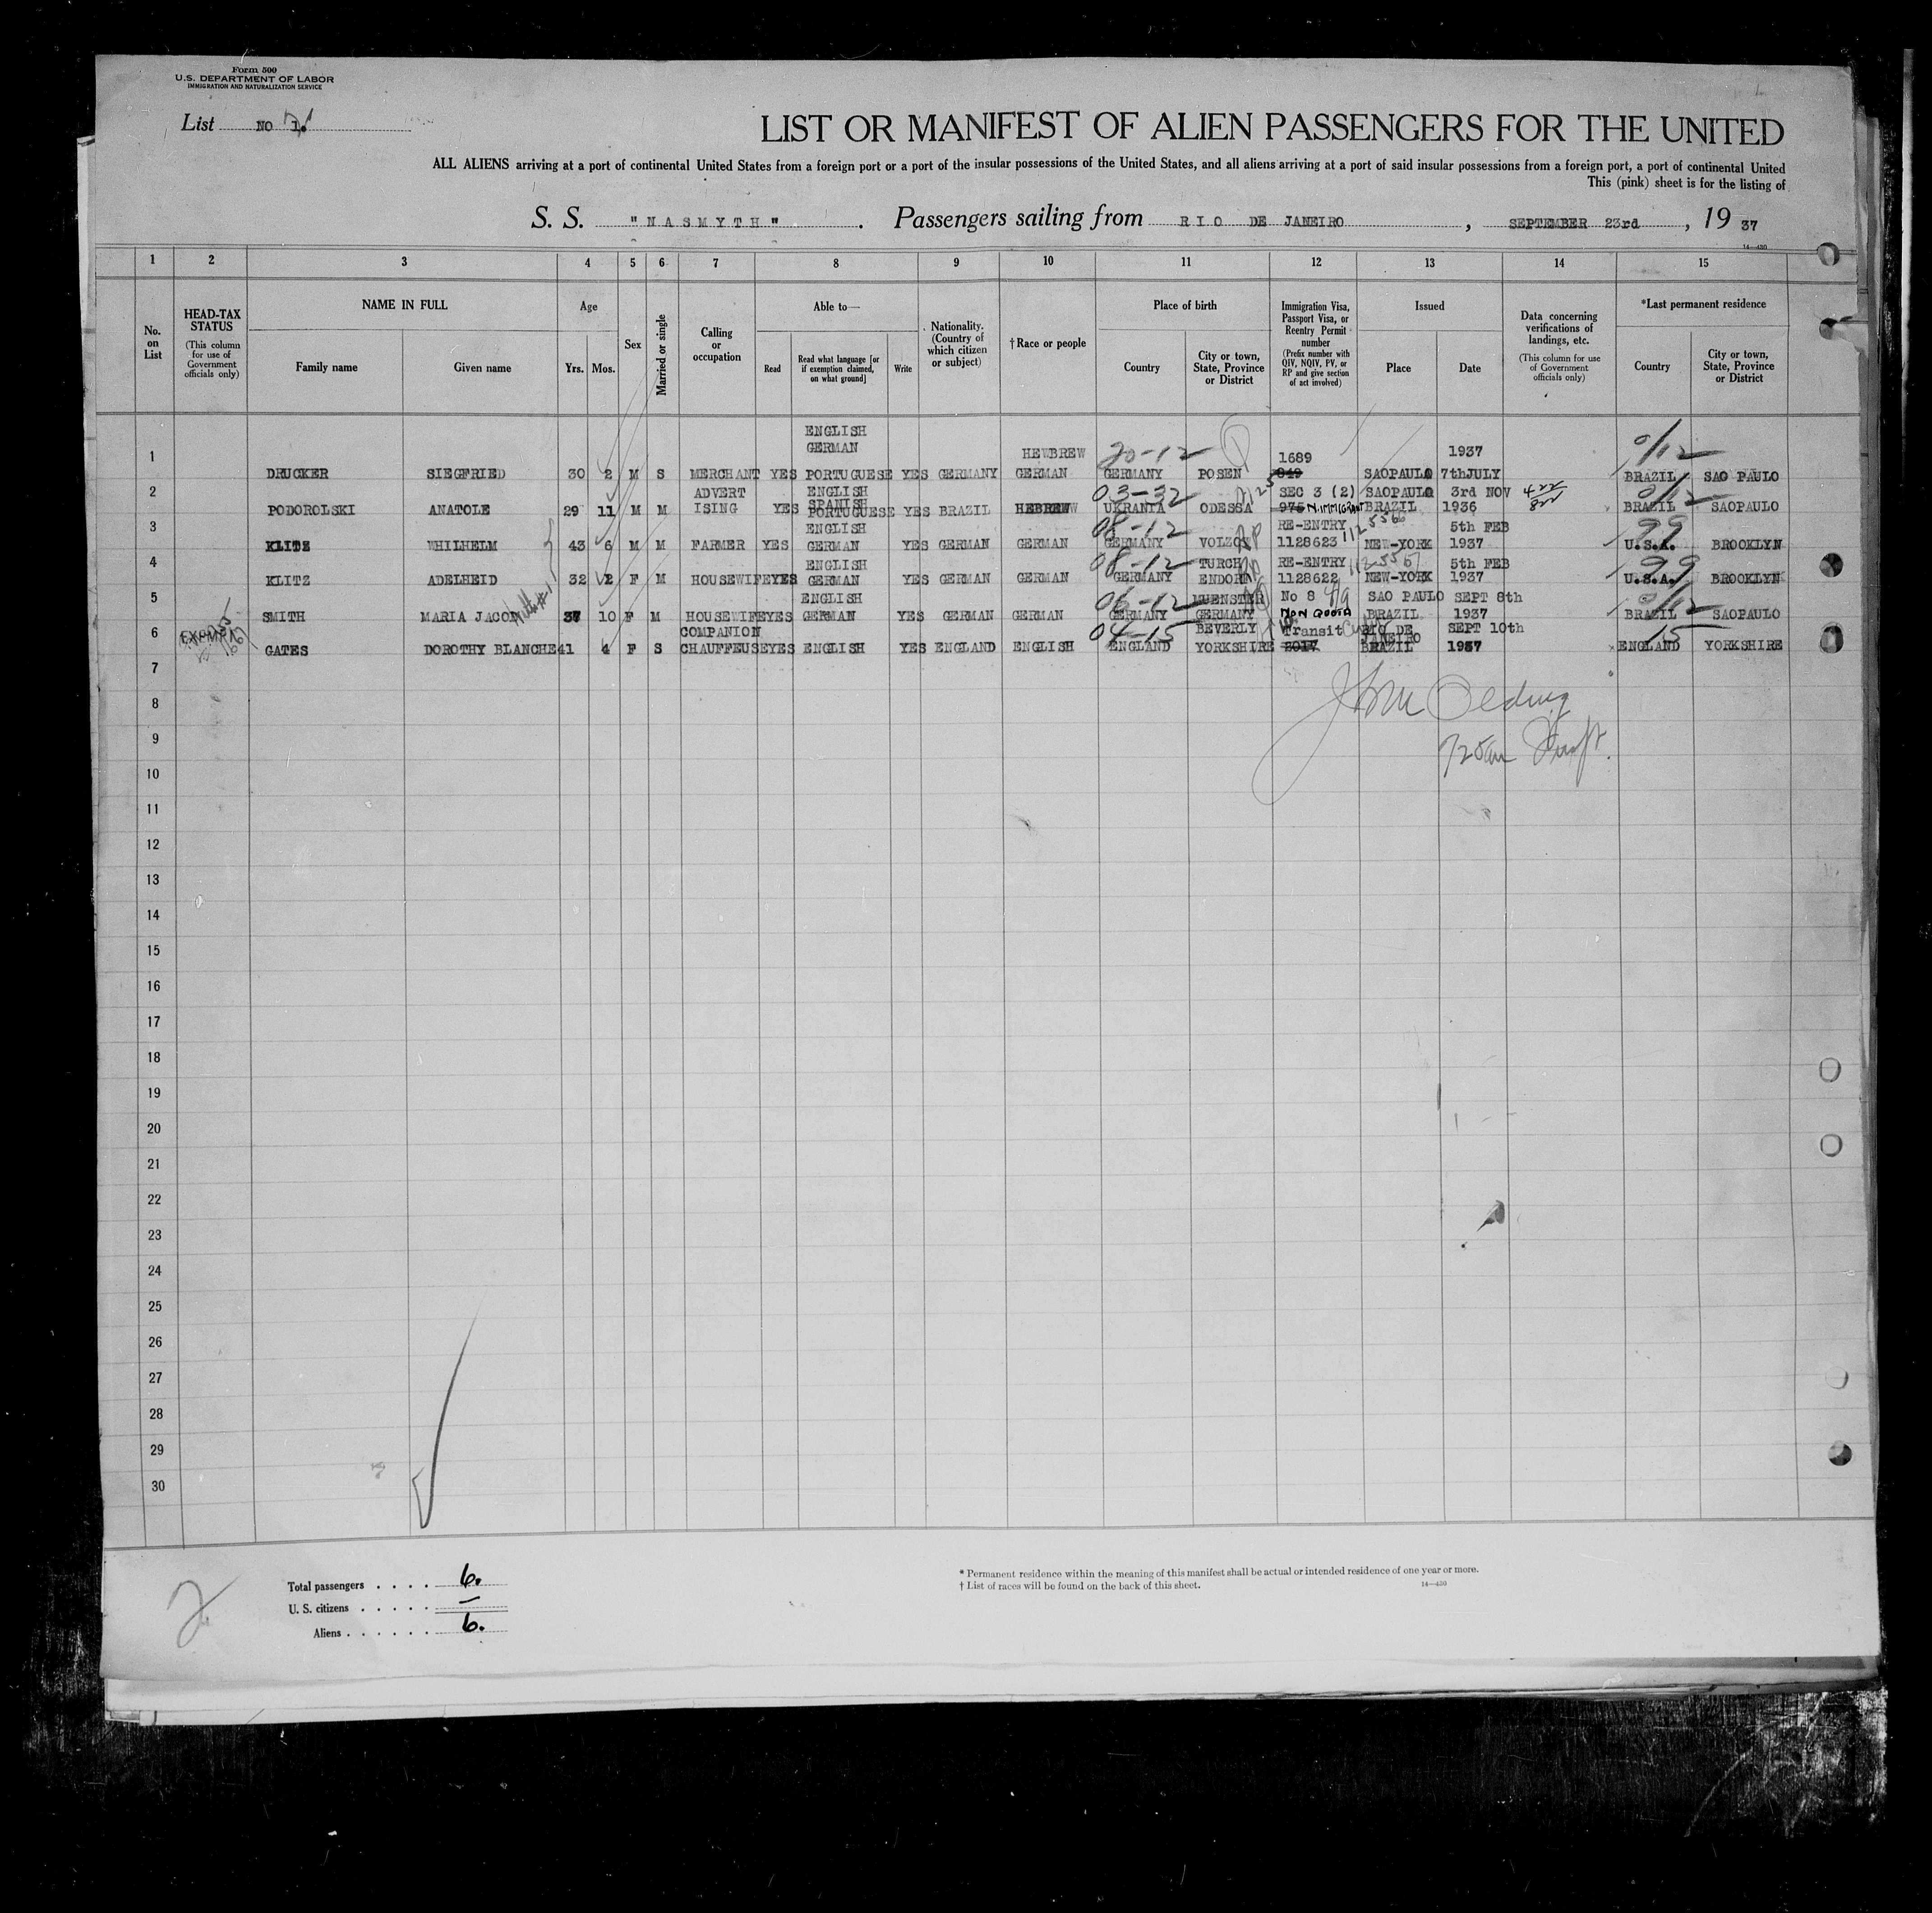 Form 500
U.S. DEPARTMENT OF LABOR
IMMIGRATION AND NATURALIZATION SERVICE
List NO 1.
LIST OR MANIFEST OF ALIEN PASSENGERS FOR THE UNITED
ALL ALIENS arriving at a port of continental United States from a foreign port or a port of the insular possessions of the United States, and all aliens arriving at a port of said insular possessions from a foreign port, a port of continental United
This (pink) sheet is for the listing of
S. S. "NASMYTH". Passengers sailing from RIO DE JANEIRO, SEPTEMBER 23rd, 19 37
14—430
1 2 3 4 5 6 7 8 9 10 11 12 13 14 15
No. on List
HEAD-TAX STATUS (This column for use of Government officials only)
NAME IN FULL
Family name Given name
Age
Yrs. Mos.
Sex
Married or single
Calling or occupation
Able to—
Read
Read what language [or if exemption claimed, on what ground]
Write
Nationality. (Country of which citizen or subject)
†Race or people
Place of birth
Country
City or town, State, Province or District
Immigration Visa, Passport Visa, or Reentry Permit number (Prefix number with QIV, NQIV, PV, or RP and give section of act involved)
Issued
Place Date
Data concerning verifications of landings, etc. (This column for use of Government officials only)
*Last permanent residence
Country
City or town, State, Province or District
ENGLISH
GERMAN
HEWBREW 20-12 1689 1937 0/12
1 DRUCKER SIEGFRIED 30 2 M S MERCHANT YES PORTUGUESE YES GERMANY GERMAN GERMANY POSEN 849 SAOPAULO 7thJULY BRAZIL SAO PAULO
ADVERT ENGLISH SPANISH 03-32 SEC 3 (2) SAOPAULO 3rd NOV 0/12
2 PODOROLSKI ANATOLE 29 11 M M ISING YES PORTUGUESE YES BRAZIL HEBREW UKRANIA ODESSA 976 N.IMMIGRANT BRAZIL 1936 BRAZIL SAOPAULO
ENGLISH 08-12 RE-ENTRY 5th FEB 99
3 KLITZ WHILHELM 43 6 M M FARMER YES GERMAN YES GERMAN GERMAN GERMANY 1128623 NEW-YORK 1937 U.S.A. BROOKLYN
ENGLISH 08-12 TURCH RE-ENTRY 5th FEB 99
4 KLITZ ADELHEID 32 2 F M HOUSEWIFE YES GERMAN YES GERMAN GERMAN GERMANY 1128622 NEW-YORK 1937 U.S.A. BROOKLYN
ENGLISH 06-12 MUENSTER No 8 SAO PAULO SEPT 8th 0/12
5 SMITH MARIA JACOB 37 10 F M HOUSEWIFE YES GERMAN YES GERMAN GERMAN GERMANY GERMANY NON QUOTA BRAZIL 1937 BRAZIL SAOPAULO
COMPANION 04-15 BEVERLY Transit RIO DE JANEIRO SEPT 10th 15
6 GATES DOROTHY BLANCHE 41 4 F S CHAUFFEUSE YES ENGLISH YES ENGLAND ENGLISH ENGLAND YORKSHIRE 2017 BRAZIL 1937 ENGLAND YORKSHIRE
7
8
9
10
11
12
13
14
15
16
17
18
19
20
21
22
23
24
25
26
27
28
29
30
2
Total passengers . . . . 6.
U. S. citizens . . . . . —
Aliens . . . . . . 6.
* Permanent residence within the meaning of this manifest shall be actual or intended residence of one year or more.
† List of races will be found on the back of this sheet.
14—430